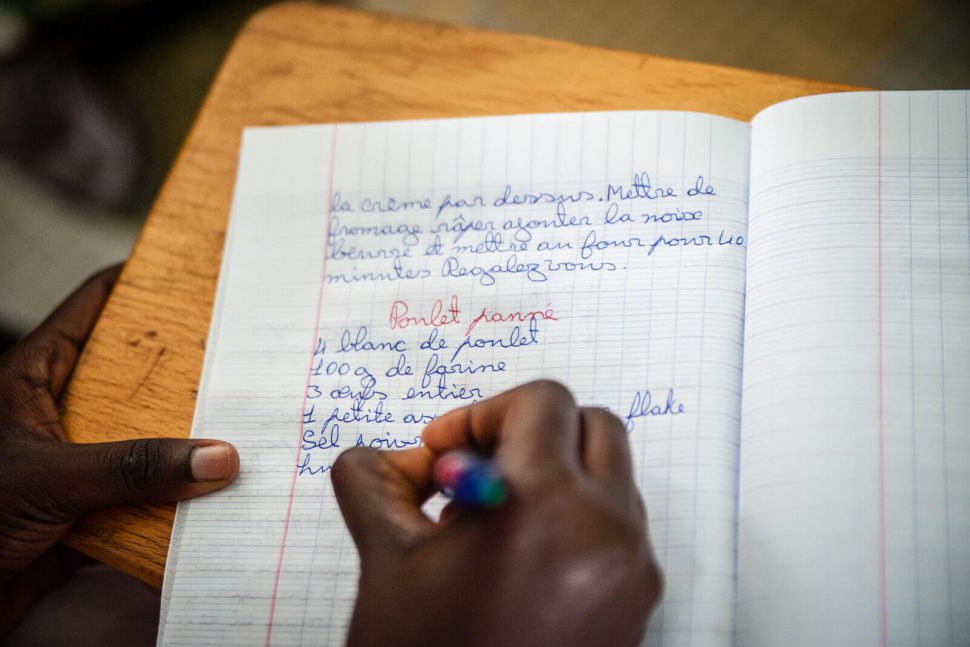 la crème par dessus. Mettre de
fromage râper ajouter la noix
beurre et mettre au four pour 40
minutes Regalez vous.
Poulet panné
4 blanc de poulet
100g de farine
3 œufs entier
1 petite flake
Sel